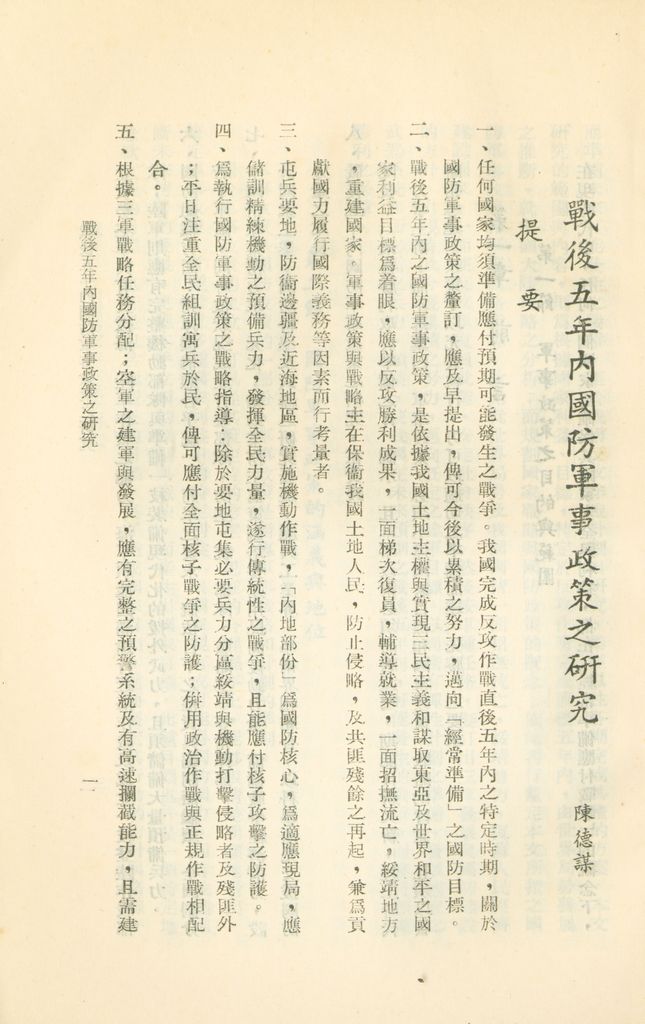 戰後五年內國防軍事政策之研究
陳德謀
提要
一、任何國家均須準備應付預期可能發生之戰爭。我國完成反攻作戰直後五年內之特定時期，關於
國防軍事政策之釐訂，應及早提出，俾可今後以累積之努力，邁向「經常準備」之國防目標。
二、戰後五年內之國防軍事政策，是依據我國土地主權與實現三民主義和謀取東亞及世界和平之國
家利益目標爲着眼，應以反攻勝利成果，一面梯次復員，輔導就業，一面招撫流亡，綏靖地方
，重建國家。軍事政策與戰略主在保衞我國土地人民，防止侵略，及共匪殘餘之再起，兼爲貢
獻國力履行國際義務等因素而行考量者。
三、屯兵要地，防衞邊疆及近海地區，實施機動作戰，「內地部份」爲國防核心，爲適應現局，應
儲訓精練機動之預備兵力，發揮全民力量，遂行傳統性之戰爭，且能應付核子攻擊之防護。
四、爲執行國防軍事政策之戰略指導：除於要地屯集必要兵力分區綏靖與機動打擊侵略者及殘匪外
；平日注重全民組訓寓兵於民，俾可應付全面核子戰爭之防護；併用政治作戰與正規作戰相配
合。
五、根據三軍戰略任務分配；空軍之建軍與發展，應有完整之預警系統及有高速攔截能力，且需建
戰後五年內國防軍事政策之研究
一